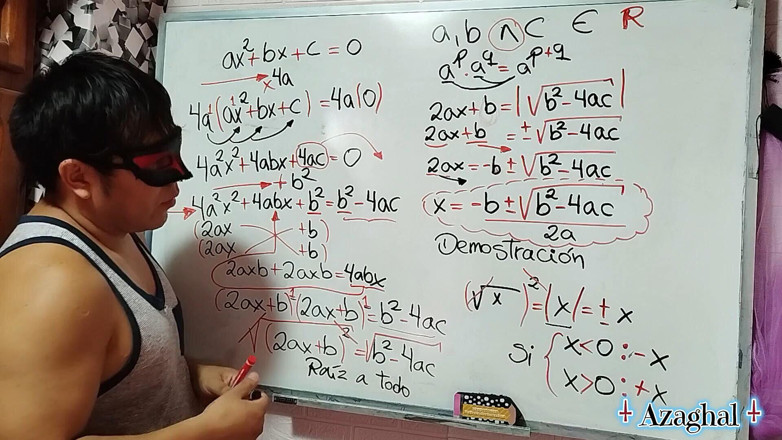 ax²+bx+c=0
→ x4a
4a(ax²+bx+c)=4a(0)
4a²x²+4abx+4ac=0
→ +b²
4a²x²+4abx+b²=b²-4ac
(2ax +b)
(2ax +b)
2axb+2axb=4abx
(2ax+b)¹(2ax+b)¹=b²-4ac
√(2ax+b)²=√b²-4ac
Raíz a todo
a,b ∧ c ∈ R
aᵖ·a^q=a^p+q
2ax+b=|√b²-4ac|
2ax+b=±√b²-4ac
2ax=-b±√b²-4ac
x=-b±√b²-4ac
2a
Demostración
(√x)²=|x|=±x
Si { x<0:-x
x>0:+x
Azaghal